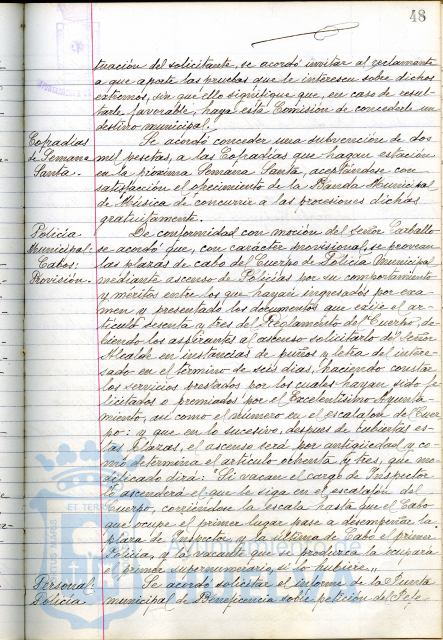 48
tuación del solicitante, se acordó invitar al reclamante
a que aporte las pruebas que le interesen sobre dichos
extremos, sin que ello signifique que, en caso de resul-
tarle favorable, haya esta Comisión de concederle un
destino municipal.
Cofradías
de Semana
Santa.
Se acordó conceder una subvención de dos
mil pesetas, a las Cofradías que hagan estación
en la próxima Semana Santa, aceptándose con
satisfacción el ofrecimiento de la Banda Municipal
de Música de concurrir a las procesiones dichas
gratuitamente.
Policía
Municipal:
Cabos:
Provisión.
De conformidad con moción del Señor Carballo
se acordó que, con carácter provisional, se provean
las plazas de cabo del Cuerpo de Policía Municipal
mediante ascenso de Policías por su comportamiento
y méritos entre los que hayan ingresados por exa-
men y presentado los documentos que exije el ar-
tículo sesenta y tres del Reglamento del Cuerpo, de-
biendo los aspirantes al ascenso solicitarlo del Señor
Alcalde en instancias de puños y letra del intere-
sado en el término de seis días, haciendo constar
los servicios prestados por los cuales hayan sido fe-
licitados o premiados por el Excelentísimo Ayunta-
miento, así como el número en el escalafón del Cuer-
po: y que en lo sucesivo, después de cubiertas es-
tas plazas, el ascenso será por antigüedad y co-
mo determina el artículo ochenta y tres, que mo-
dificado dirá: "Si vacan el cargo de Inspector
lo ascenderá el que le siga en el escalafón del
Cuerpo, corriéndose la escala hasta que el Cabo
que ocupe el primer lugar pase a desempeñar la
plaza de Inspector, y la última de Cabo el primer
Policía, y la vacante que se produzca la ocupará
el primer supernumerario, si lo hubiere."
Personal:
Policía
Se acordó solicitar el informe de la Junta
municipal de Beneficencia sobre petición del Pole-